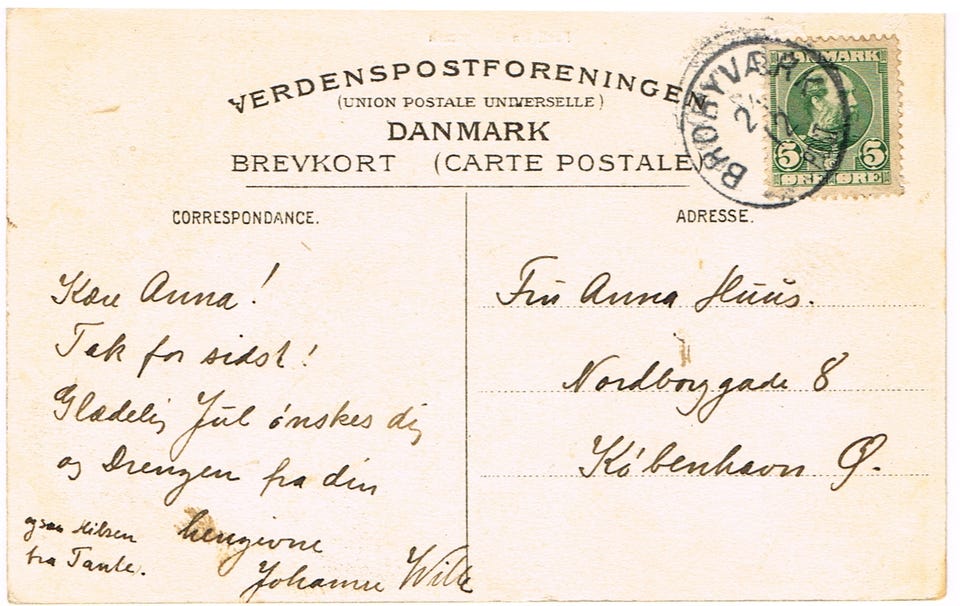 VERDENSPOSTFORENINGEN
(UNION POSTALE UNIVERSELLE)
DANMARK
BREVKORT (CARTE POSTALE)
BROBYVÆRK
DANMARK
5 5
ØRE ØRE
CORRESPONDANCE.
Kære Anna!
Tak for sidst!
Glædelig Jul ønskes dig
og Drengen fra din
hengivne
Johanne Wille
ogsaa Hilsen
fra Tante.
ADRESSE.
Fru Anna Huus.
Nordborggade 8
København Ø.